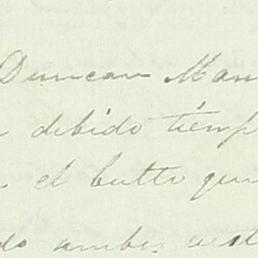 Duncan Man
debido tiemp
el bulto que
do ambos